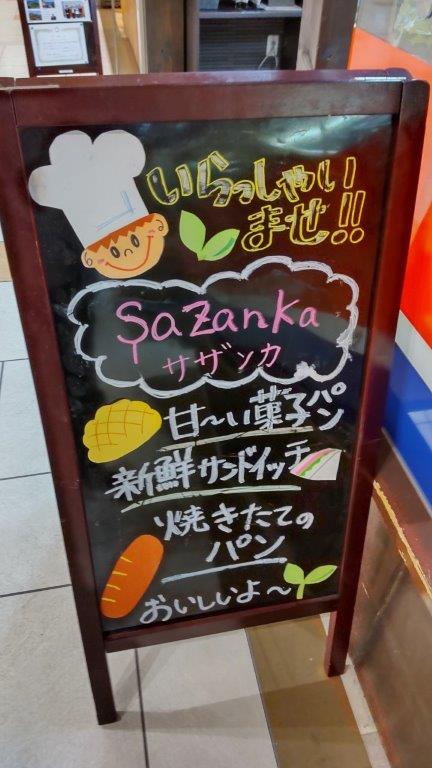 いらっしゃい
ませ!!
Sazanka
サザンカ
甘〜い菓子パン
新鮮サンドイッチ
焼きたての
パン
おいしいよ〜